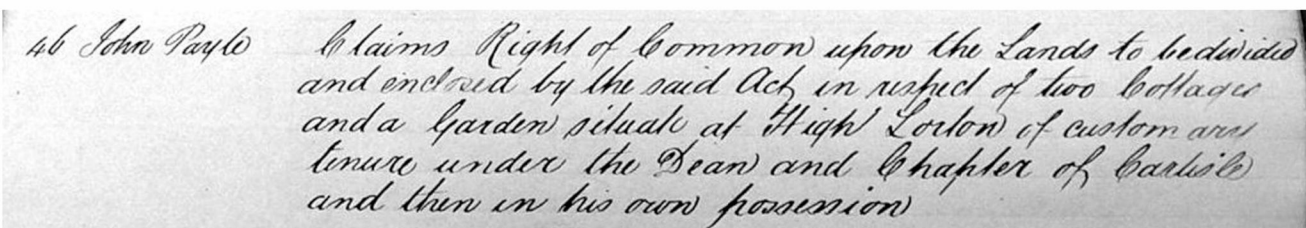 46 John Payle Claims Right of Common upon the Lands to be divided
and enclosed by the said Act, in respect of two Cottages
and a Garden situate at High Lorton of customary
tenure under the Dean and Chapter of Carlisle
and then in his own possession